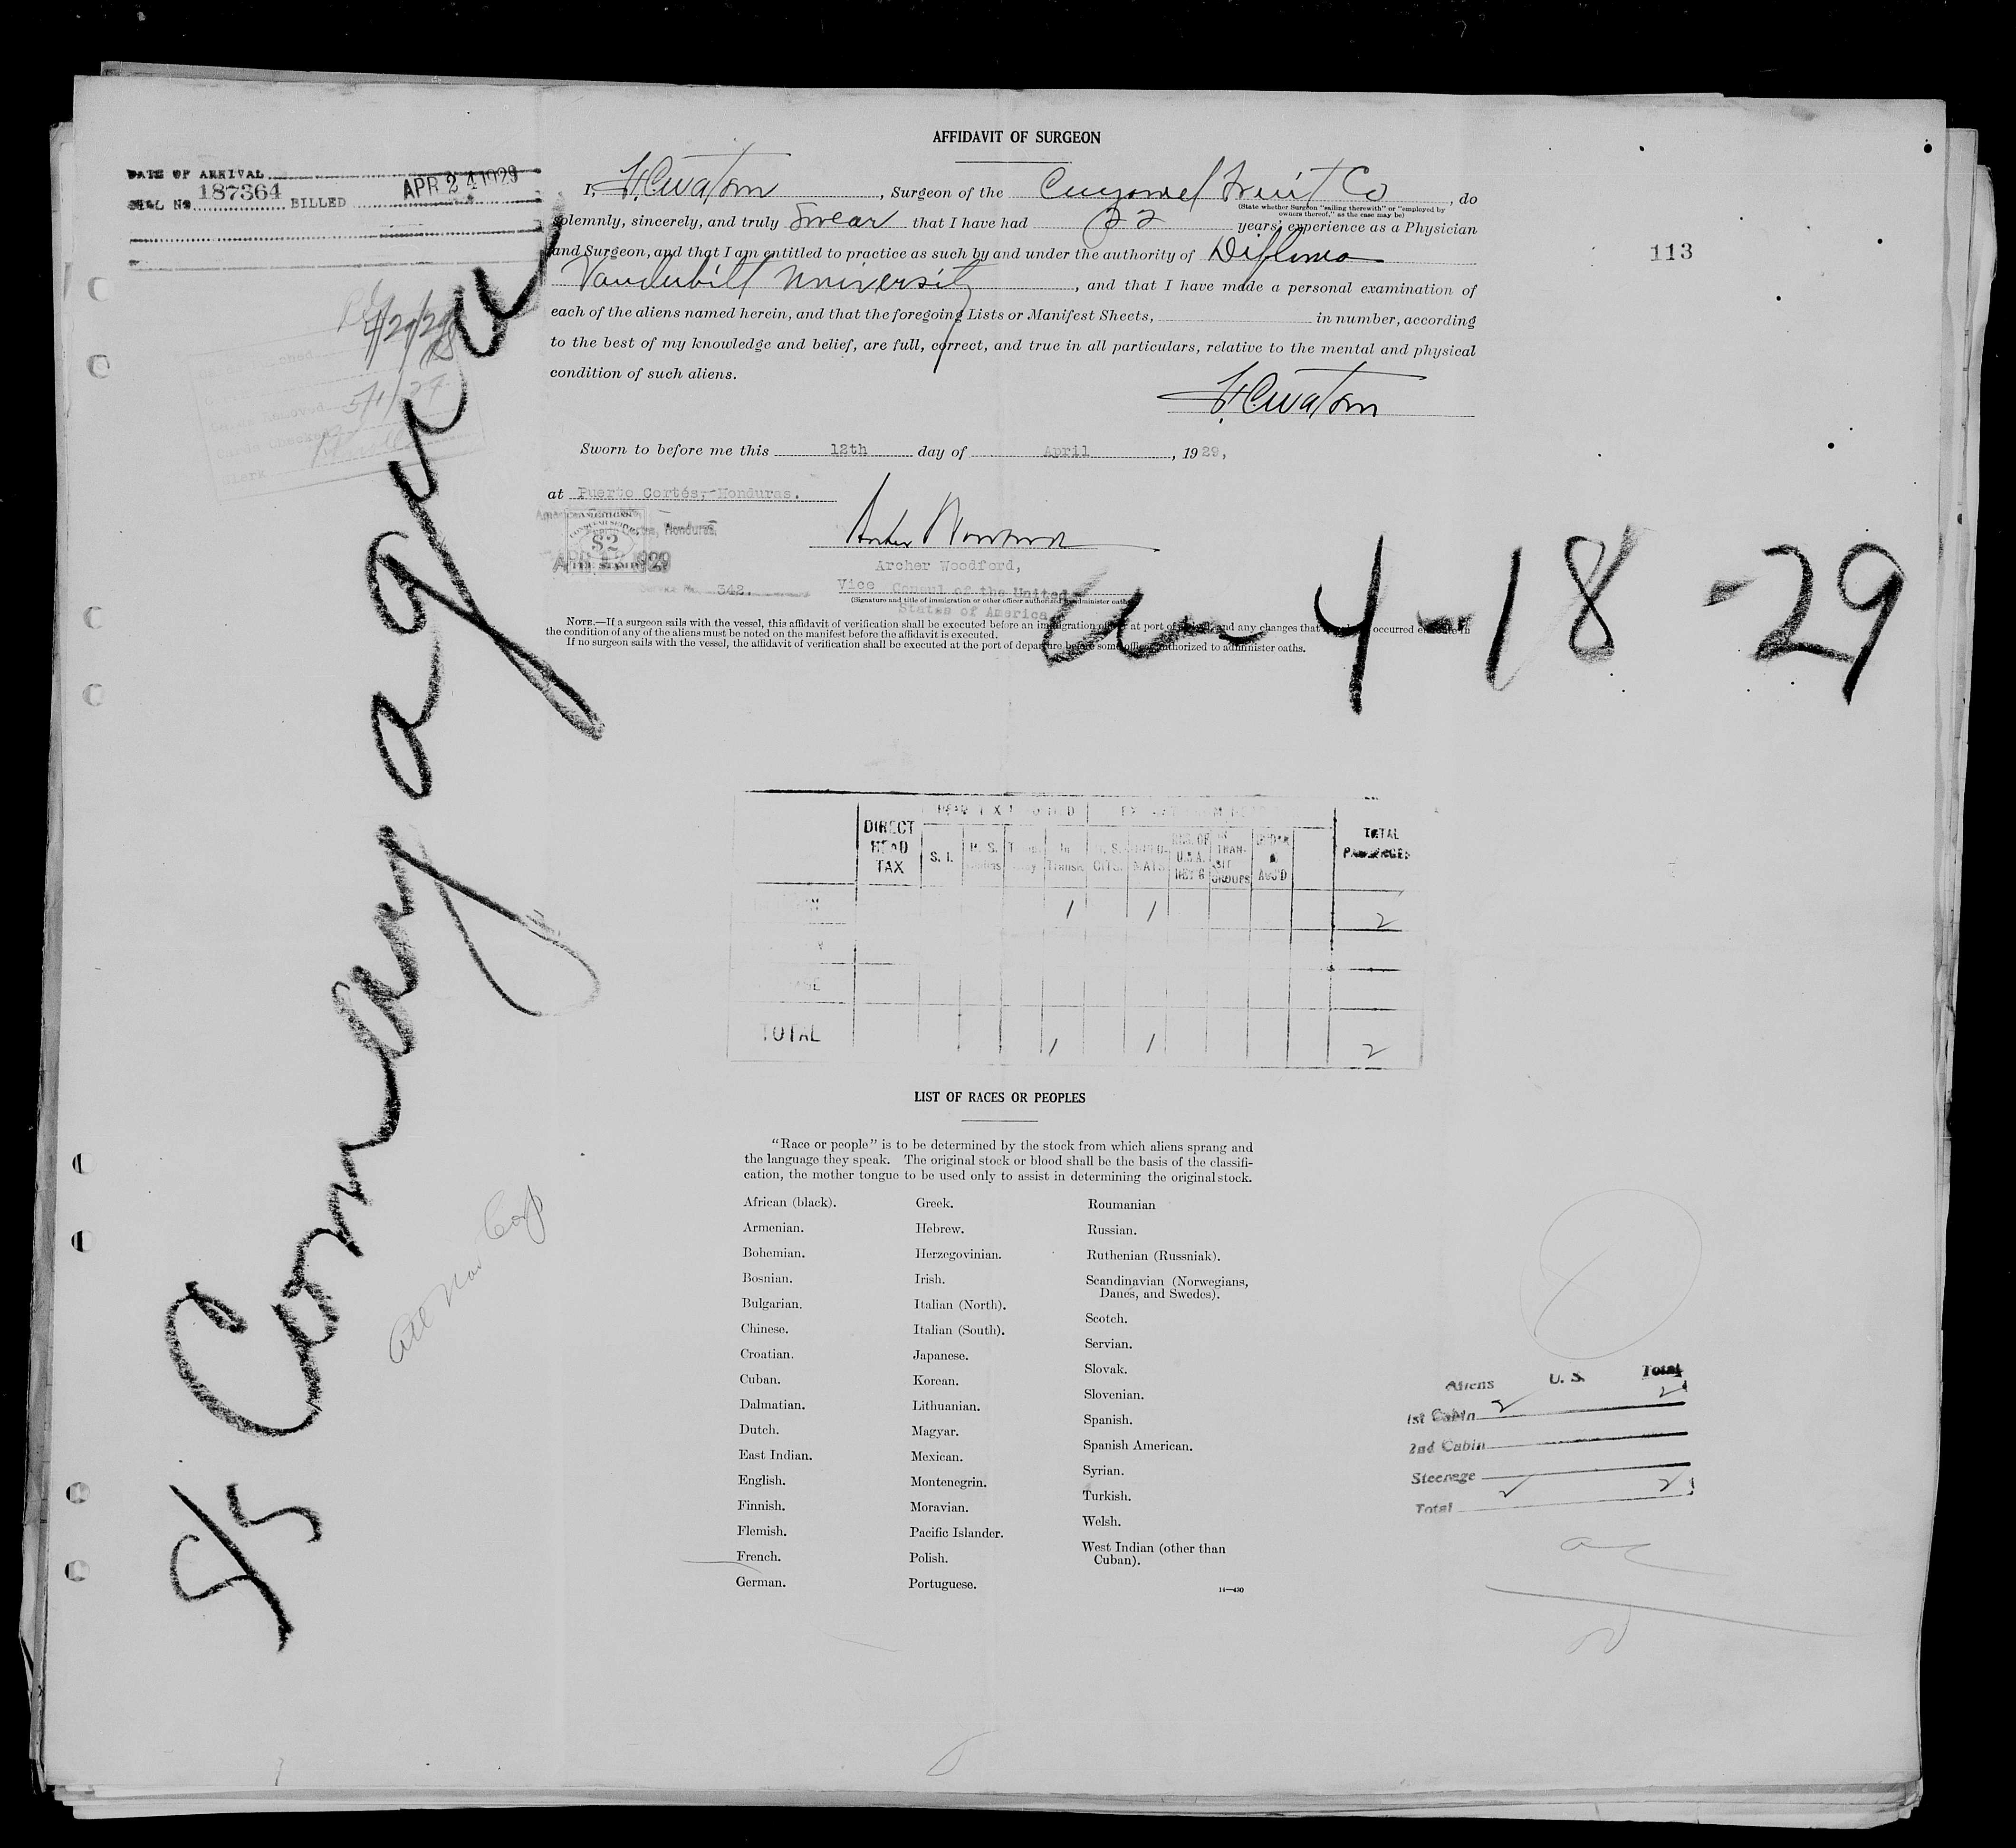 AFFIDAVIT OF SURGEON
DATE OF ARRIVAL
BILL No 187364 BILLED APR 24 1929
113
I, , Surgeon of the Cuyamel Fruit Co, do
(State whether Surgeon "sailing therewith" or "employed by
owners thereof," as the case may be)
solemnly, sincerely, and truly swear that I have had 22 years' experience as a Physician
and Surgeon, and that I am entitled to practice as such by and under the authority of Diploma
Vanderbilt University, and that I have made a personal examination of
each of the aliens named herein, and that the foregoing Lists or Manifest Sheets, in number, according
to the best of my knowledge and belief, are full, correct, and true in all particulars, relative to the mental and physical
condition of such aliens.
Clerk
Sworn to before me this 12th day of April, 1929,
at Puerto Cortés, Honduras.
$2
Archer Woodford
Archer Woodford,
Vice Consul of the United
States of America
(Signature and title of immigration or other officer authorized to administer oaths)
Service No. 342.
4-18-29
NOTE.—If a surgeon sails with the vessel, this affidavit of verification shall be executed before an immigration officer at port of and any changes that occurred en route in
the condition of any of the aliens must be noted on the manifest before the affidavit is executed.
If no surgeon sails with the vessel, the affidavit of verification shall be executed at the port of departure before some officer authorized to administer oaths.
S/S Comayagua
DIRECT HEAD TAX
S. I.
In Transit
U. S. CITS.
TOTAL PASSENGERS
1 1 2
TOTAL 1 1 2
LIST OF RACES OR PEOPLES
"Race or people" is to be determined by the stock from which aliens sprang and
the language they speak. The original stock or blood shall be the basis of the classifi-
cation, the mother tongue to be used only to assist in determining the original stock.
African (black).
Armenian.
Bohemian.
Bosnian.
Bulgarian.
Chinese.
Croatian.
Cuban.
Dalmatian.
Dutch.
East Indian.
English.
Finnish.
Flemish.
French.
German.
Greek.
Hebrew.
Herzegovinian.
Irish.
Italian (North).
Italian (South).
Japanese.
Korean.
Lithuanian.
Magyar.
Mexican.
Montenegrin.
Moravian.
Pacific Islander.
Polish.
Portuguese.
Roumanian
Russian.
Ruthenian (Russniak).
Scandinavian (Norwegians,
Danes, and Swedes).
Scotch.
Servian.
Slovak.
Slovenian.
Spanish.
Spanish American.
Syrian.
Turkish.
Welsh.
West Indian (other than
Cuban).
14—430
Aliens U. S. Total
1st Cabin 2 2
2nd Cabin
Steerage
Total 2 2